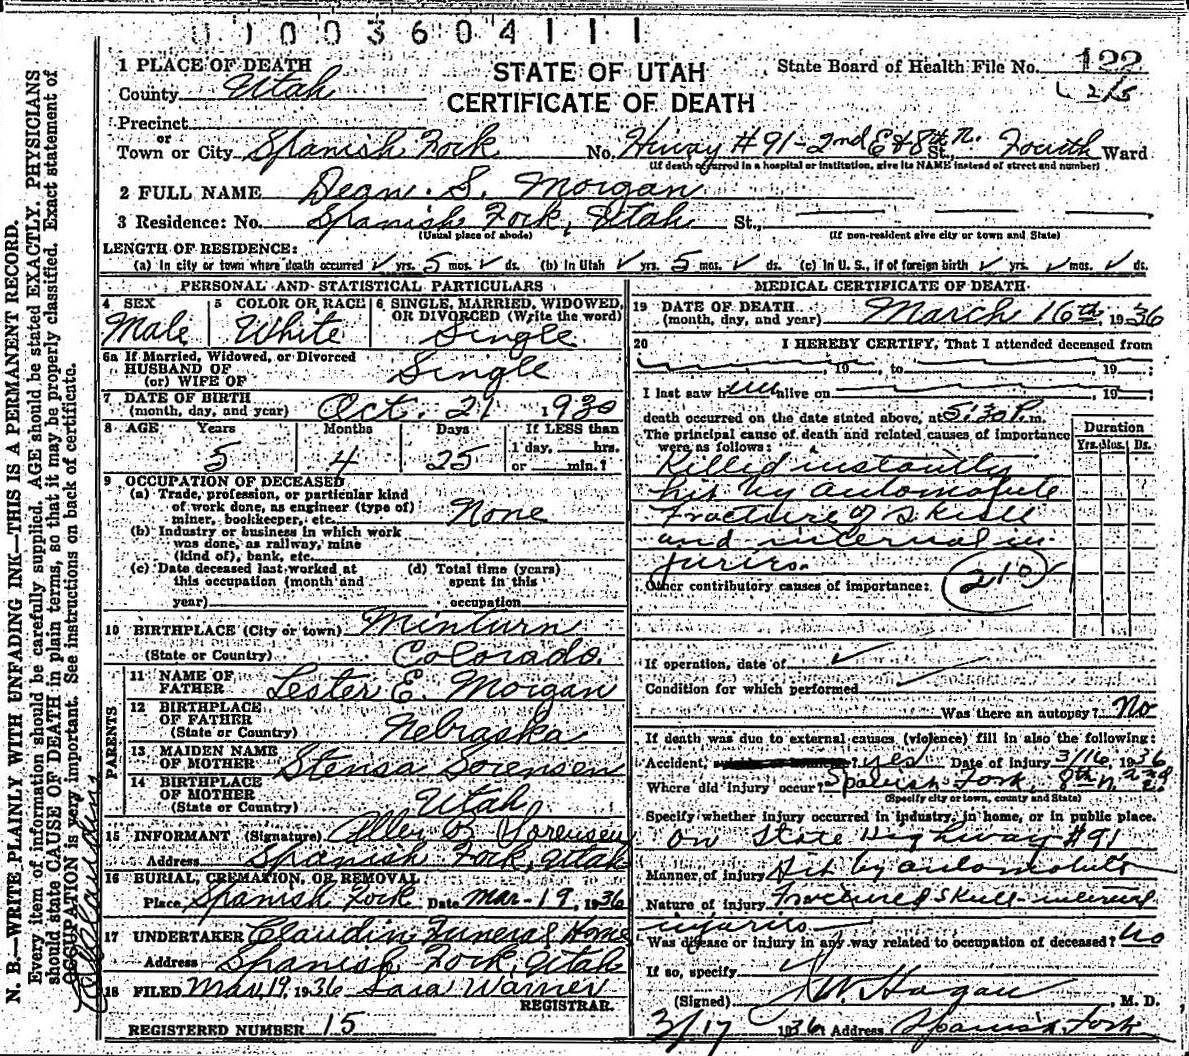 01003604111
1 PLACE OF DEATH
STATE OF UTAH
State Board of Health File No. 122
County Utah
CERTIFICATE OF DEATH
2/5
Precinct
or
Town or City Spanish Fork No. Hiway #91-2nd E & 8th N. St., Fourth Ward
(If death occurred in a hospital or institution, give its NAME instead of street and number)
2 FULL NAME Dean S. Morgan
3 Residence: No. Spanish Fork, Utah St.,
(Usual place of abode) (If non-resident give city or town and State)
LENGTH OF RESIDENCE:
(a) In city or town where death occurred ✓ yrs. 5 mos. ✓ ds. (b) In Utah ✓ yrs. 5 mos. ✓ ds. (c) In U. S., if of foreign birth ✓ yrs. ✓ mos. ✓ ds.
PERSONAL AND STATISTICAL PARTICULARS
4 SEX Male
5 COLOR OR RACE White
6 SINGLE, MARRIED, WIDOWED, OR DIVORCED (Write the word) Single
6a If Married, Widowed, or Divorced
HUSBAND OF
(or) WIFE OF Single
7 DATE OF BIRTH
(month, day, and year) Oct. 21 1930
8 AGE Years Months Days If LESS than
1 day, hrs.
5 4 25 or min.?
9 OCCUPATION OF DECEASED
(a) Trade, profession, or particular kind
of work done, as engineer (type of)
miner, bookkeeper, etc. None
(b) Industry or business in which work
was done, as railway, mine
(kind of), bank, etc.
(c) Date deceased last worked at
this occupation (month and
year)
(d) Total time (years)
spent in this
occupation
10 BIRTHPLACE (City or town) Minturn
(State or Country) Colorado.
PARENTS
11 NAME OF
FATHER Lester E. Morgan
12 BIRTHPLACE
OF FATHER
(State or Country) Nebraska
13 MAIDEN NAME
OF MOTHER Stensa Sorensen
14 BIRTHPLACE
OF MOTHER
(State or Country) Utah
15 INFORMANT (Signature) Allen B. Sorensen
Address Spanish Fork, Utah
16 BURIAL, CREMATION, OR REMOVAL
Place Spanish Fork Date Mar-19, 1936
17 UNDERTAKER Claudin Funeral Home
Address Spanish Fork, Utah
18 FILED Mar. 19, 1936 Sara Warner
REGISTRAR.
REGISTERED NUMBER 15
MEDICAL CERTIFICATE OF DEATH
19 DATE OF DEATH
(month, day, and year) March 16th, 1936
20 I HEREBY CERTIFY, That I attended deceased from
, 19 , to , 19 ;
I last saw h alive on , 19 ;
death occurred on the date stated above, at 5:30 P. m.
The principal cause of death and related causes of importance
were as follows:
Duration
Yrs. Mos. Ds.
Killed instantly
hit by automobile
Fracture of Skull
and internal in
juries.
Other contributory causes of importance: 210
If operation, date of ✓
Condition for which performed
Was there an autopsy? No
If death was due to external causes (violence) fill in also the following:
Accident, suicide or homicide? yes Date of injury 3/16, 1936
Where did injury occur? Spanish Fork, 8th N. 2nd E.
(Specify city or town, county and State)
Specify whether injury occurred in industry, in home, or in public place.
on State Highway #91
Manner of injury Hit by automobile
Nature of injury Fractured Skull-internal
injuries
Was disease or injury in any way related to occupation of deceased? no
If so, specify
(Signed) Hagan, M. D.
3/17 1936 Address Spanish Fork
N. B.—WRITE PLAINLY WITH UNFADING INK—THIS IS A PERMANENT RECORD.
Every item of information should be carefully supplied. AGE should be stated EXACTLY. PHYSICIANS
should state CAUSE OF DEATH in plain terms, so that it may be properly classified. Exact statement of
OCCUPATION is very important. See instructions on back of certificate.